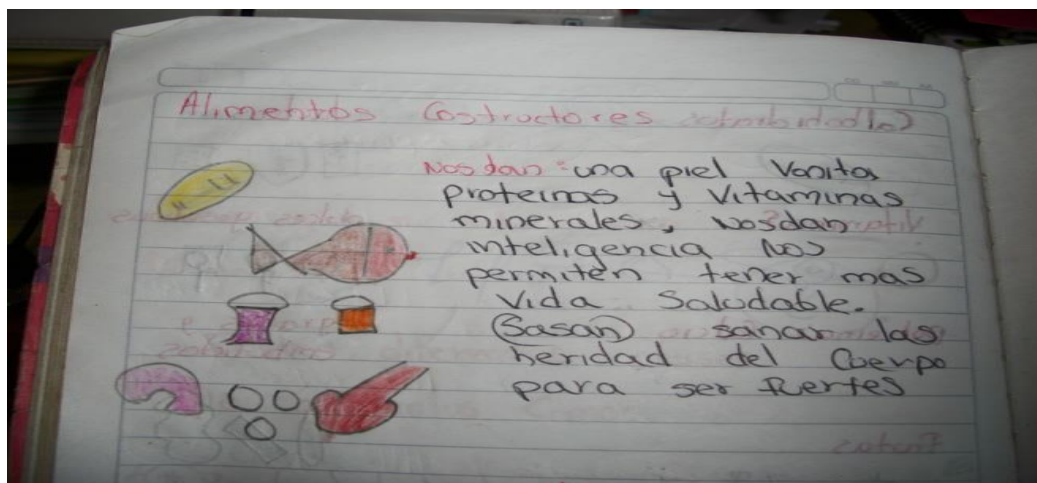 Alimentos Costructores
Nos dan: una piel Vonita
proteinas y Vitaminas
minerales, Nosdan
inteligencia Nos
permiten tener mas
Vida Saludable.
(Sasan) sanar las
heridad del Cuerpo
para ser fuertes